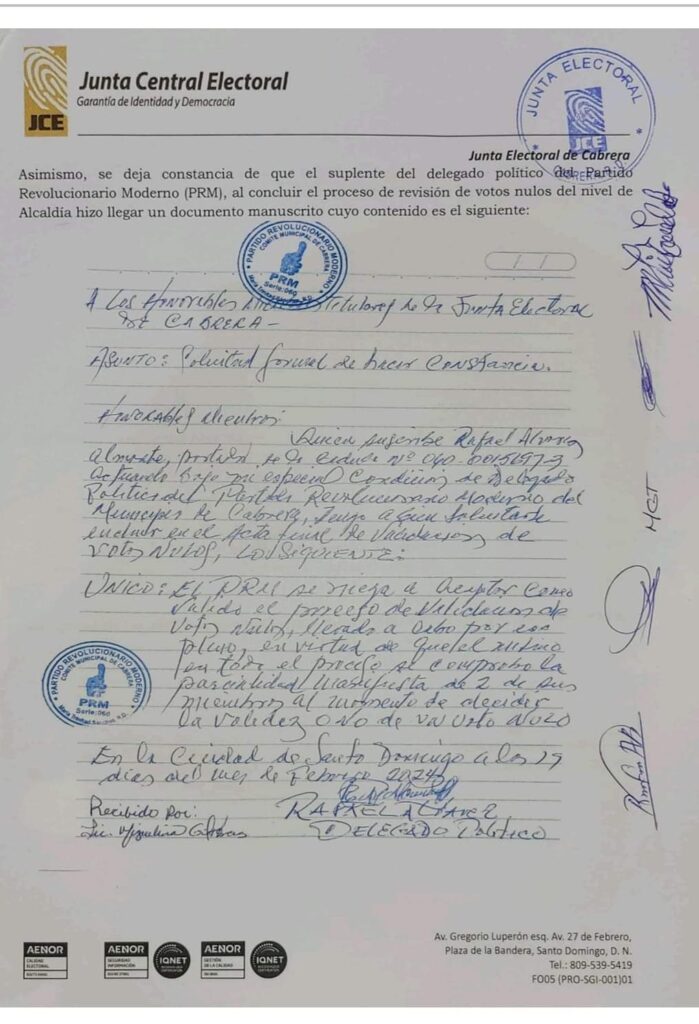 JCE
Junta Central Electoral
Garantía de Identidad y Democracia
JUNTA ELECTORAL
JCE
CABRERA
Junta Electoral de Cabrera
Asimismo, se deja constancia de que el suplente del delegado político del Partido
Revolucionario Moderno (PRM), al concluir el proceso de revisión de votos nulos del nivel de
Alcaldía hizo llegar un documento manuscrito cuyo contenido es el siguiente:
PARTIDO REVOLUCIONARIO MODERNO
COMITE MUNICIPAL DE CABRERA
PRM
Serie:060
A Los Honorables titulares de la Junta Electoral
DE CABRERA -
ASUNTO: Solicitud formal de hacer Constancia.
HONORABLES Miembros:
Quien suscribe Rafael
Almonte, de la Cedula Nº 060-0015697-3
Actuando bajo mi especial Condicion de Delegado
Politico del Partido Revolucionario Moderno del
Municipio de Cabrera, Tengo a bien Solicitarle
incluir en el Acta final de Validacion de
VOTOS NULOS, LO SIGUIENTE:
UNICO: EL PRM se niega a Aceptar Como
Valido el proceso de Validacion de
Votos Nulos, llevado a Cabo por ese
pleno, en virtud de que el mismo
en todo el proceso se comprobo la
parcialidad Manifiesta de 2 de sus
miembros al momento de decidir
la validez o No de un Voto NULO
PARTIDO REVOLUCIONARIO MODERNO
COMITE MUNICIPAL DE CABRERA
PRM
Serie:060
María Trinidad Sánchez, R.D.
En la Ciudad de Santo Domingo a los 29
dias del mes de Febrero 2024
Recibido Por:
RAFAEL
Lic.
DELEGADO Politico
MGT
AENOR
CALIDAD
ELECTORAL
AENOR
SEGURIDAD
INFORMACIÓN
IQNET
AENOR
GESTIÓN
DE LA CALIDAD
IQNET
Av. Gregorio Luperón esq. Av. 27 de Febrero,
Plaza de la Bandera, Santo Domingo, D. N.
Tel.: 809-539-5419
FO05 (PRO-SGI-001)01